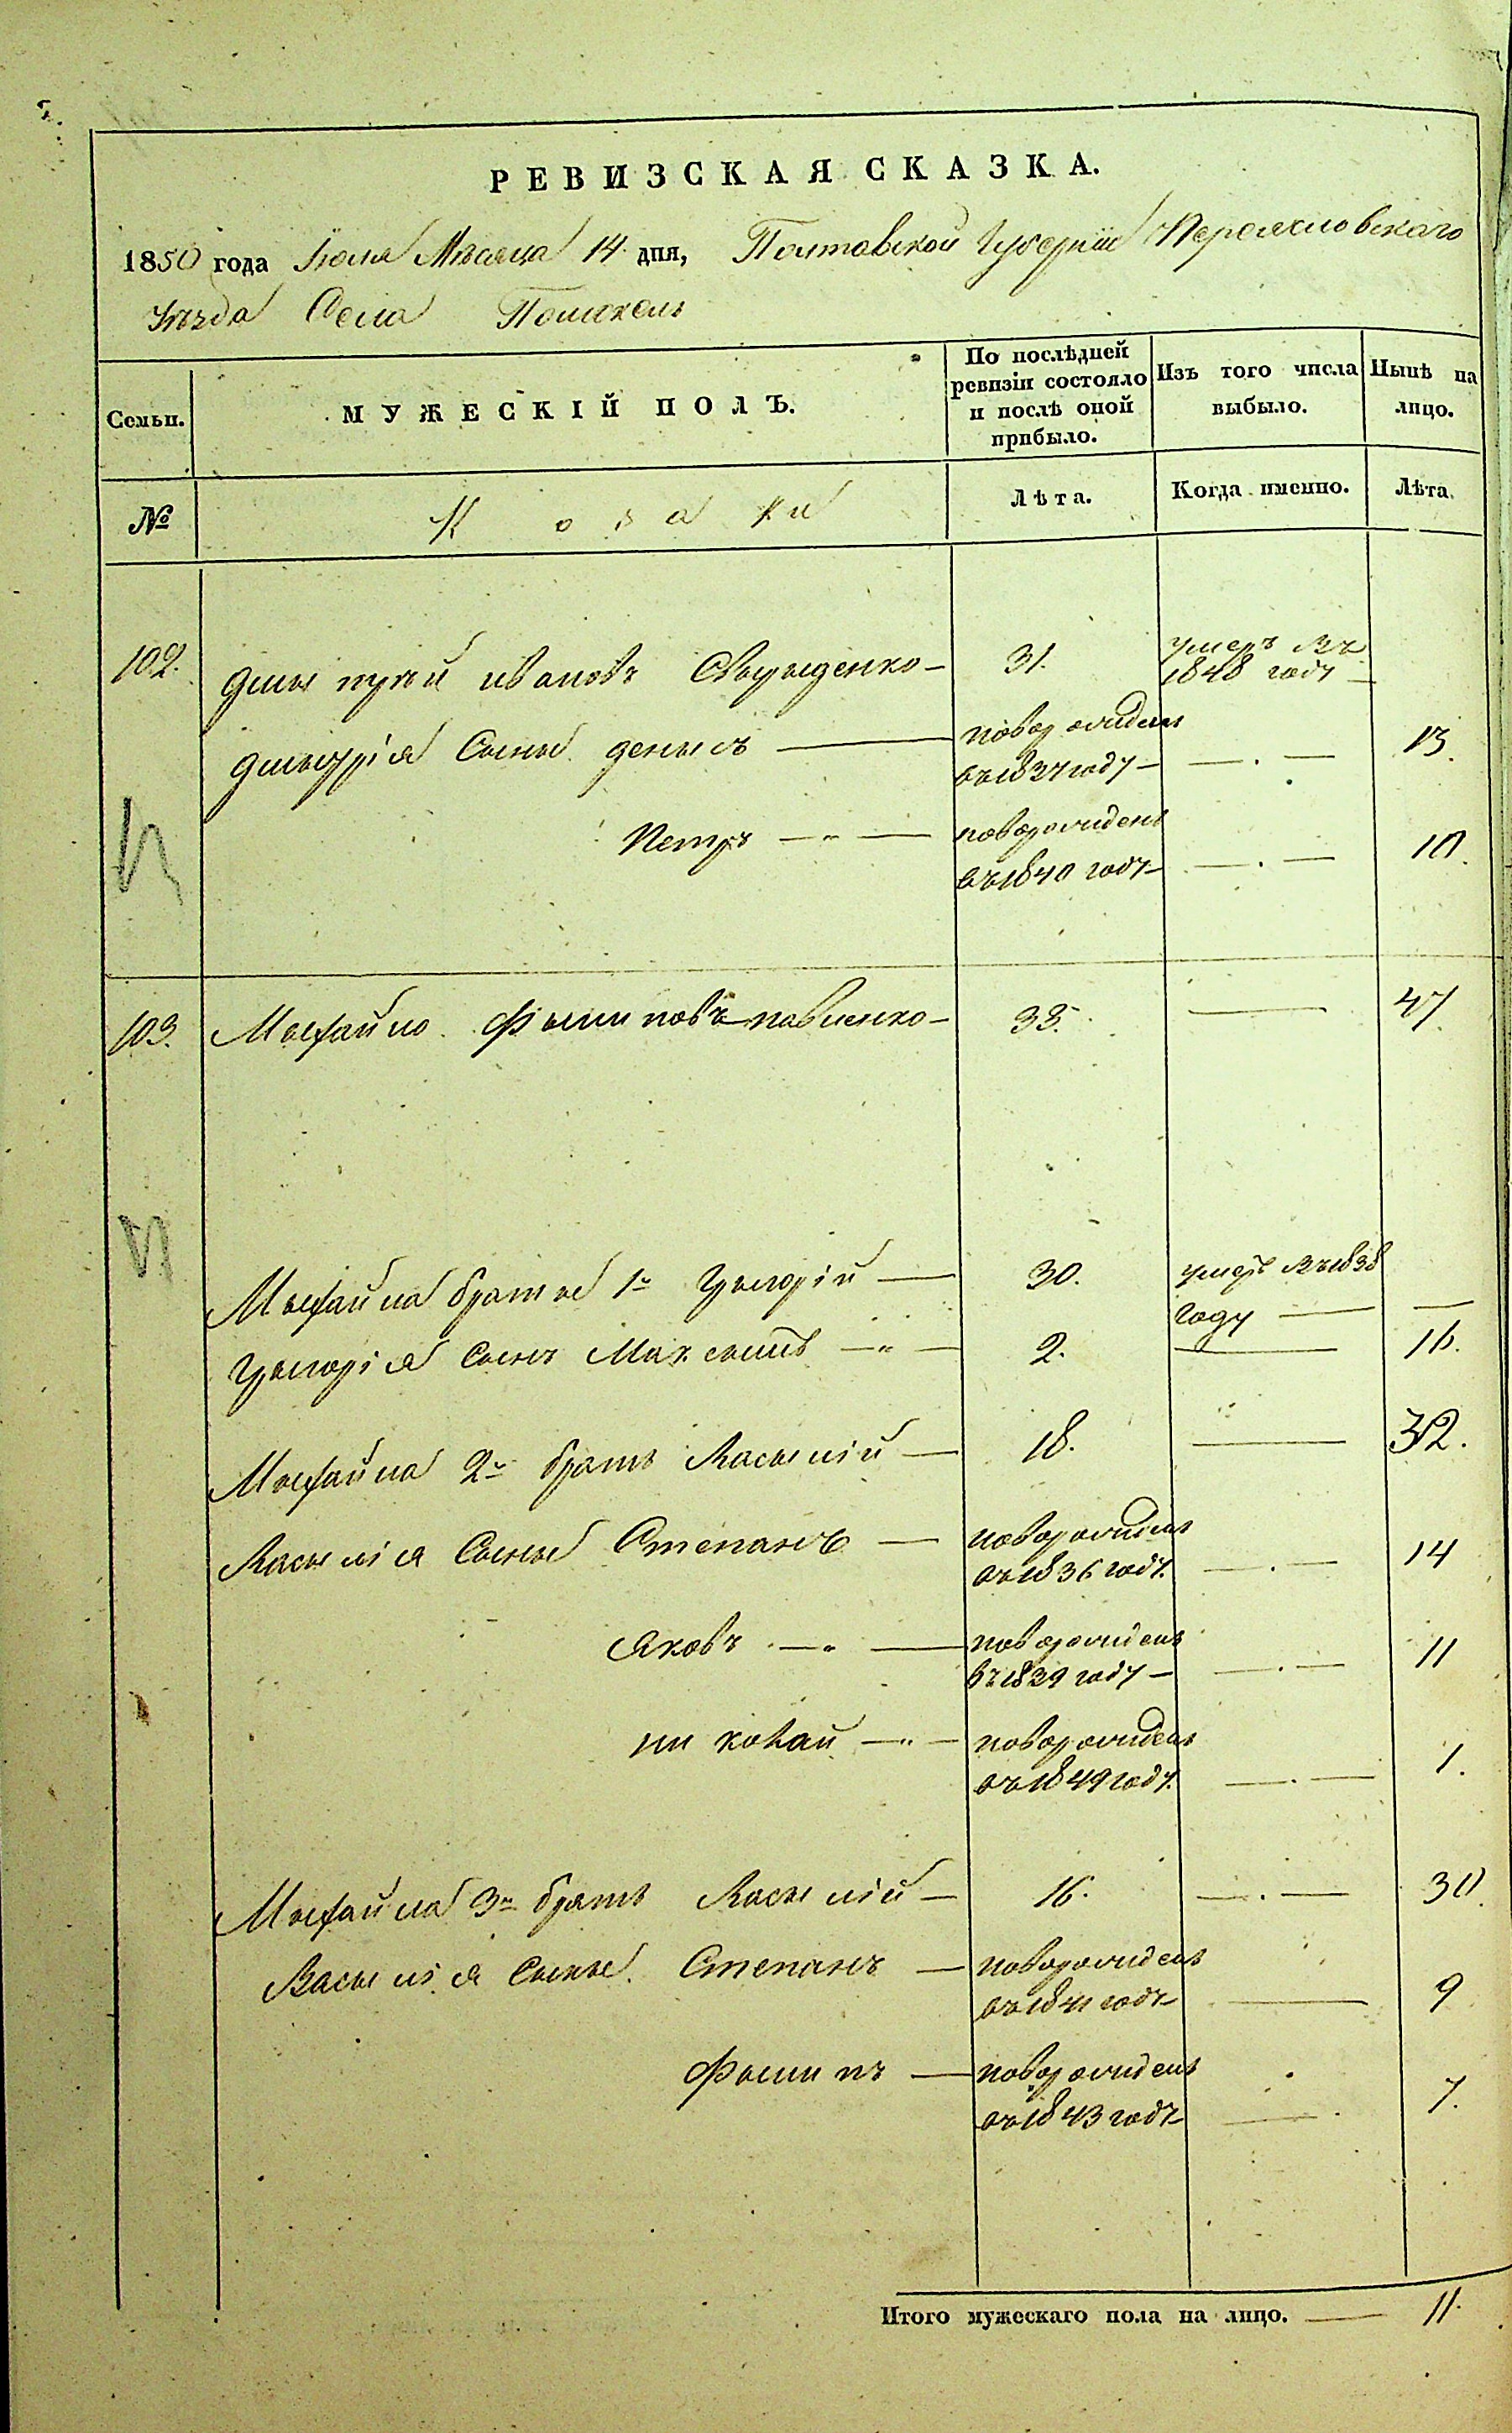 РЕВИЗСКАЯ СКАЗКА.
1850 года Іюля Мѣсяца 14 дня, Полтавской Губерніи Переясловскаго
Уѣзда Села Помокель
Семьи.
МУЖЕСКІЙ ПОЛЪ.
По послѣдней ревизіи состояло и послѣ оной прибыло.
Изъ того числа выбыло.
Нынѣ на лицо.
№
Козаки
Лѣта.
Когда именно.
Лѣта.
102. Дмытрій Ивановъ Свырыденко — 31. умеръ въ
1848 году —
Дмытрія Сыны Денысъ — новорожденъ
въ 1837 году — — . — 13.
Петръ — „ — новорожденъ
въ 1840 году — — . — 10.
103. Мыхайло Фылиповъ Павленко — 33. — 47.
Мыхайла братья 1й Грыгорій — 30. умеръ въ 1838
году — —
Грыгорія сынъ Максымъ — „ — 2. — 16.
Мыхайла 2й братъ Васылій — 18. — 32.
Васылія Сыны Степанъ — новорожденъ
въ 1836 году. — . — 14
Яковъ — „ — новорожденъ
въ 1839 году — — . — 11
Николай — „ — новорожденъ
въ 1849 году. — . — 1.
Мыхайла 3й братъ Васылій — 16. — . — 30.
Васылія Сыны Степанъ — новорожденъ
въ 1841 году — — 9
Фылипъ — новорожденъ
въ 1843 году — — . 7.
Итого мужескаго пола на лицо. — 11.